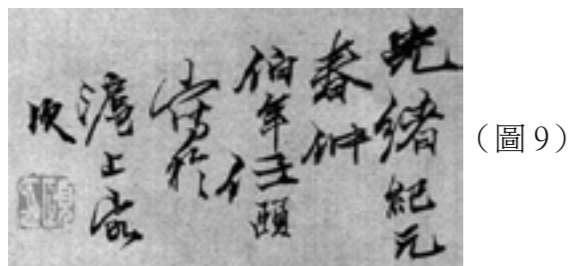 光緒紀元
春仲
伯年任頤
寫於
滬上寓
次
（圖9）